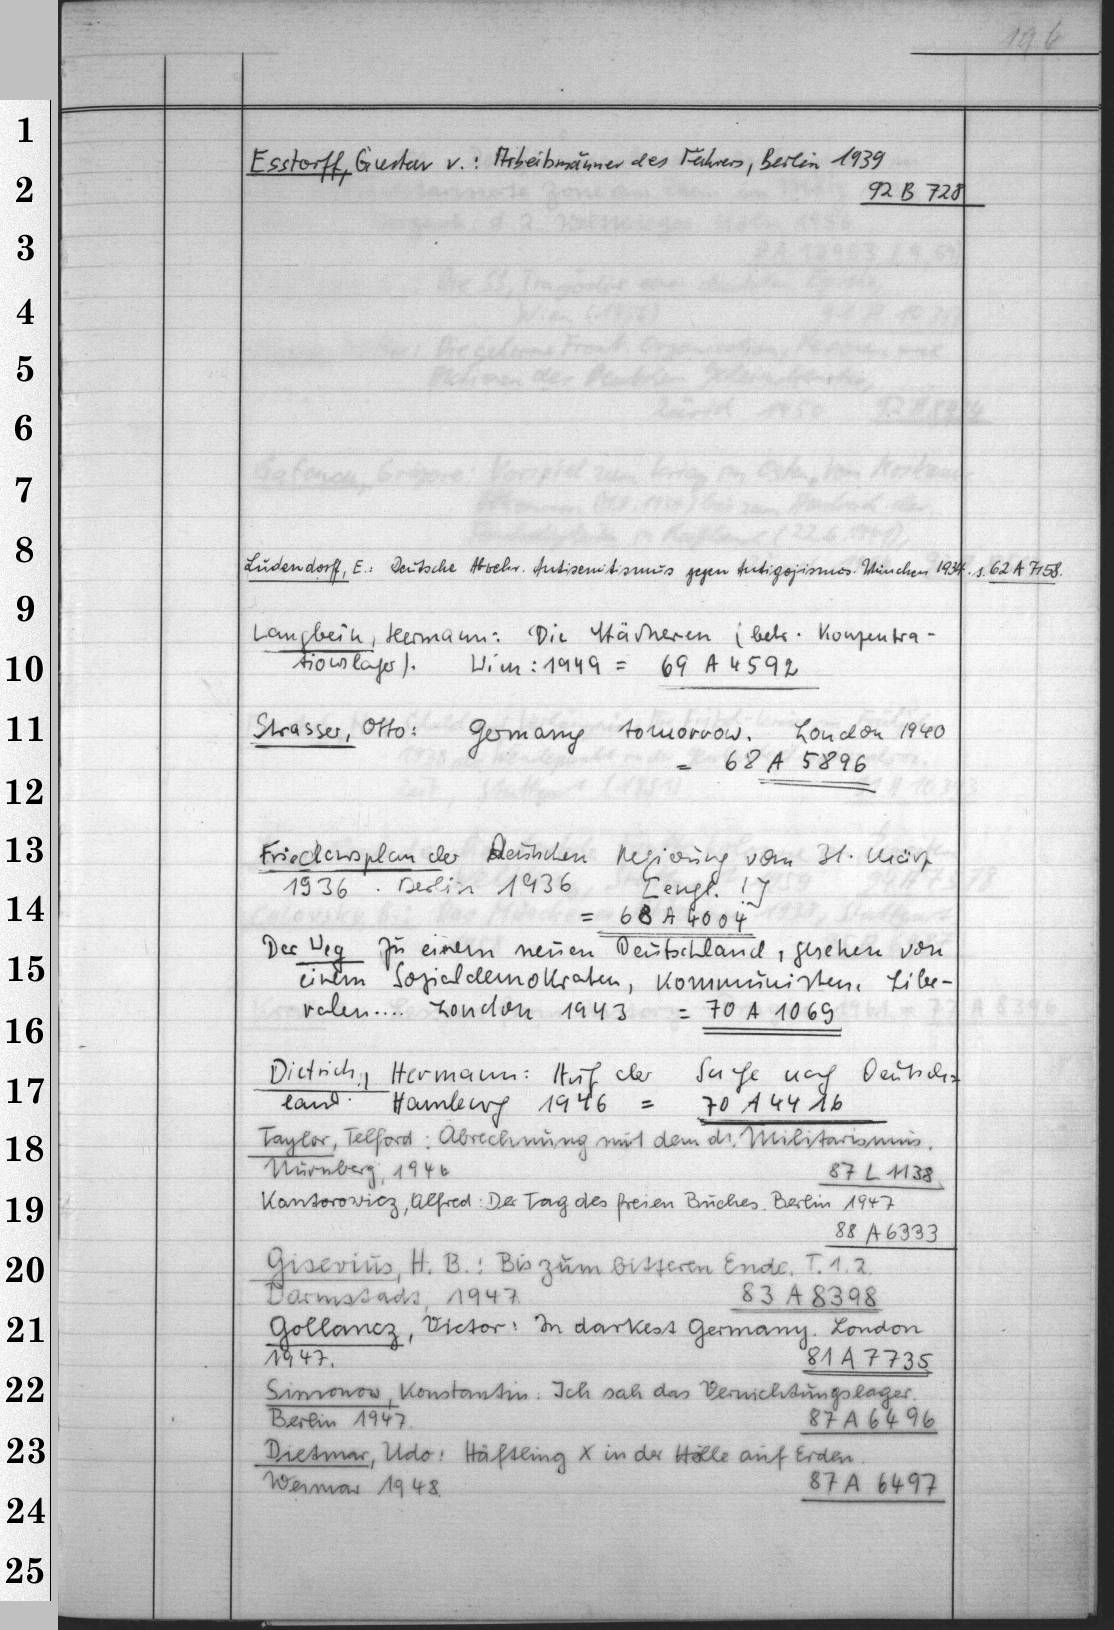 196
Esstorff, Gustav v.: Arbeitsmänner des Führers, Berlin 1939
92 B 728
Ludendorff, E.: Deutsche Abwehr. Antisemitismus gegen Antigojismus. München 1934. s. 62 A 7158.
Langbein, Hermann: Die Stärkeren (betr. Konzentra-
tionslager). Wien: 1949 = 69 A 4592
Strasser, Otto: Germany tomorrow. London 1940
= 68 A 5896
Friedensplan der Deutschen Regierung vom 31. März
1936. Berlin 1936 [engl.!]
= 68 A 4004
Der Weg zu einem neuen Deutschland, gesehen von
einem Sozialdemokraten, Kommunisten, Libe-
ralen.... London 1943 = 70 A 1069
Dietrich, Hermann: Auf der Suche nach Deutsch-
land. Hamburg 1946 = 70 A 4416
Taylor, Telford: Abrechnung mit dem dt. Militarismus.
Nürnberg, 1946 87 L 1138
Kantorowicz, Alfred: Der Tag des freien Buches. Berlin 1947
88 A 6333
Gisevius, H. B.: Bis zum bitteren Ende. T. 1.2.
Darmstadt, 1947. 83 A 8398
Gollancz, Victor: In darkest Germany. London
1947. 81 A 7735
Simonow, Konstantin: Ich sah das Vernichtungslager.
Berlin 1947. 87 A 6496
Dietmar, Udo: Häftling X in der Hölle auf Erden.
Weimar 1948. 87 A 6497
1
2
3
4
5
6
7
8
9
10
11
12
13
14
15
16
17
18
19
20
21
22
23
24
25